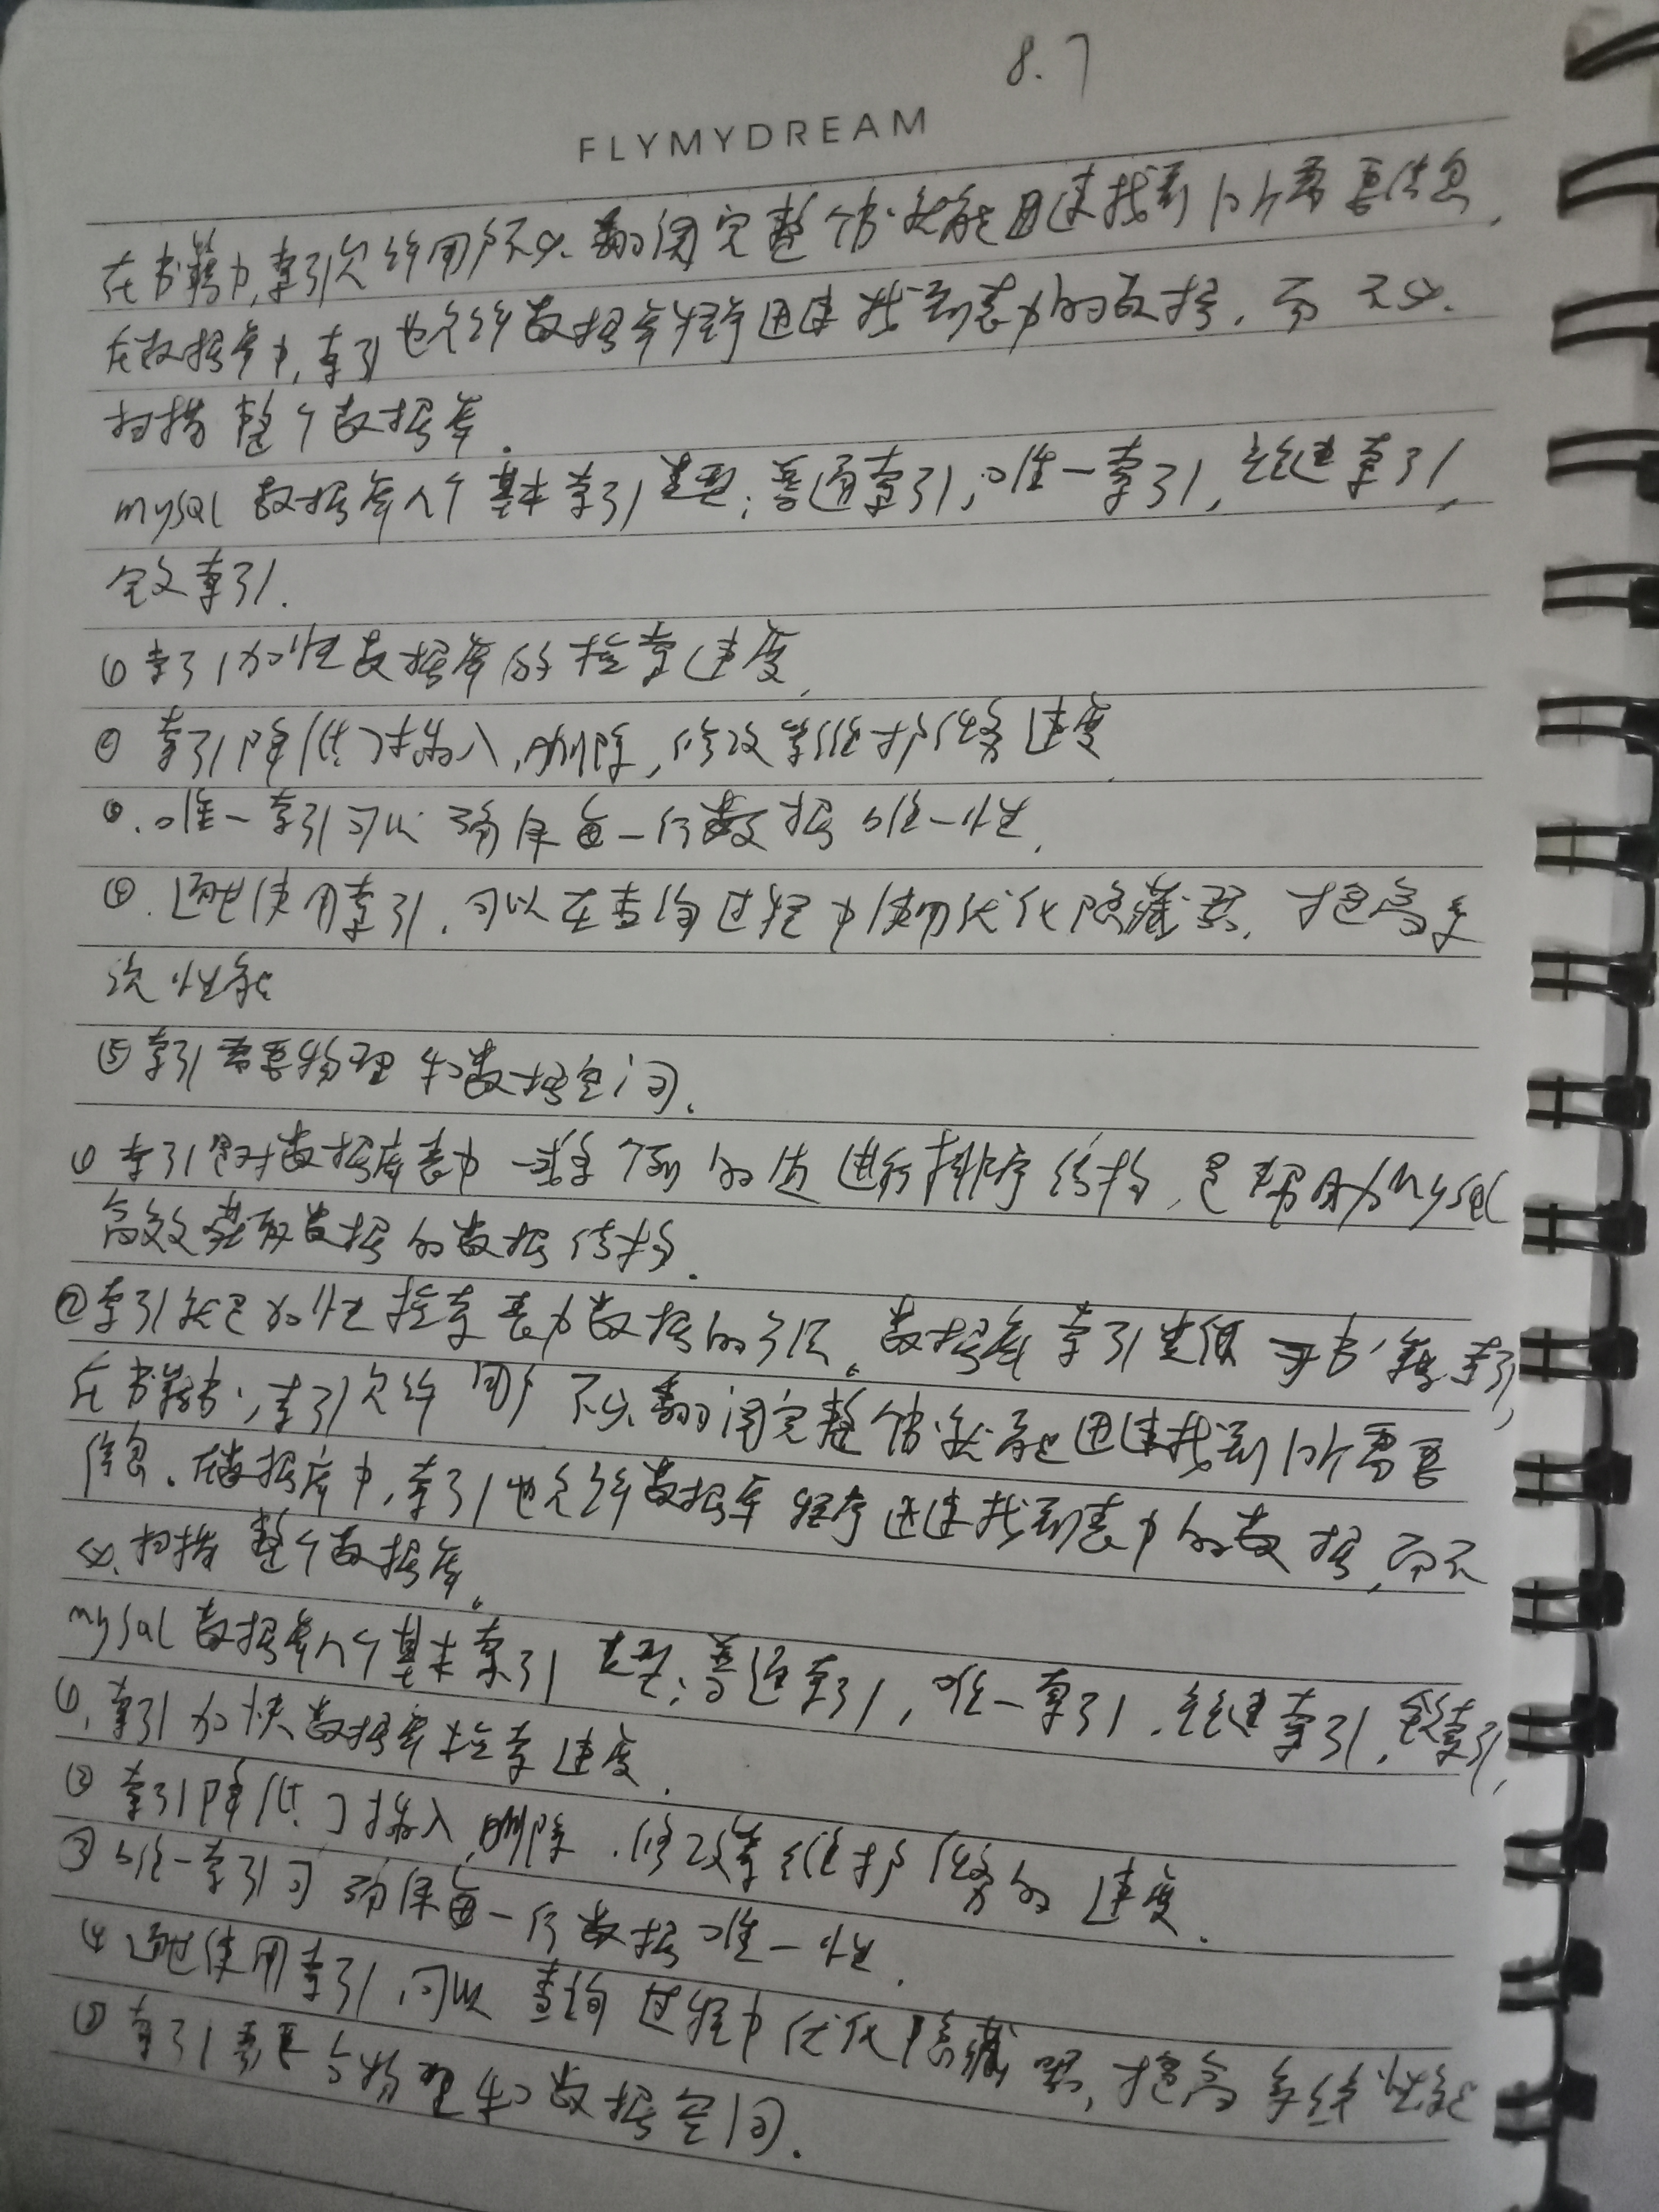 8.7
FLYMYDREAM
在书籍中,索引允许用户不必翻阅完整个书就能迅速找到所需要信息,
在数据库中,索引也允许数据库程序迅速找到表中的数据,而不必
扫描整个数据库.
mysql 数据库几个基本索引类型:普通索引,唯一索引,主键索引,
全文索引.
① 索引加快数据库的检索速度,
② 索引降低了插入,删除,修改等维护任务速度
③.唯一索引可以确保每一行数据唯一性.
④.通过使用索引.可以在查询过程中使用优化隐藏器.提高系
统性能
⑤索引需要物理和数据空间.
① 索引是对数据库表中一或多个列的值进行排序结构,是帮助mysql
高效获取数据的数据结构.
②索引就是加快检索表中数据的方法。数据库索引类似于书籍索引,
在书籍中,索引允许用户不必翻阅完整个书就能迅速找到所需要
信息.在数据库中,索引也允许数据库程序迅速找到表中的数据,而不
必扫描整个数据库。
mysql 数据库几个基本索引类型:普通索引,唯一索引.主键索引,全文索引,
①.索引加快数据库检索速度.
② 索引降低了插入,删除.修改等维护任务的速度.
③ 唯一索引可确保每一行数据唯一性.
④ 通过使用索引.可以查询过程中优化隐藏器,提高系统性能
⑤ 索引需要占物理和数据空间.